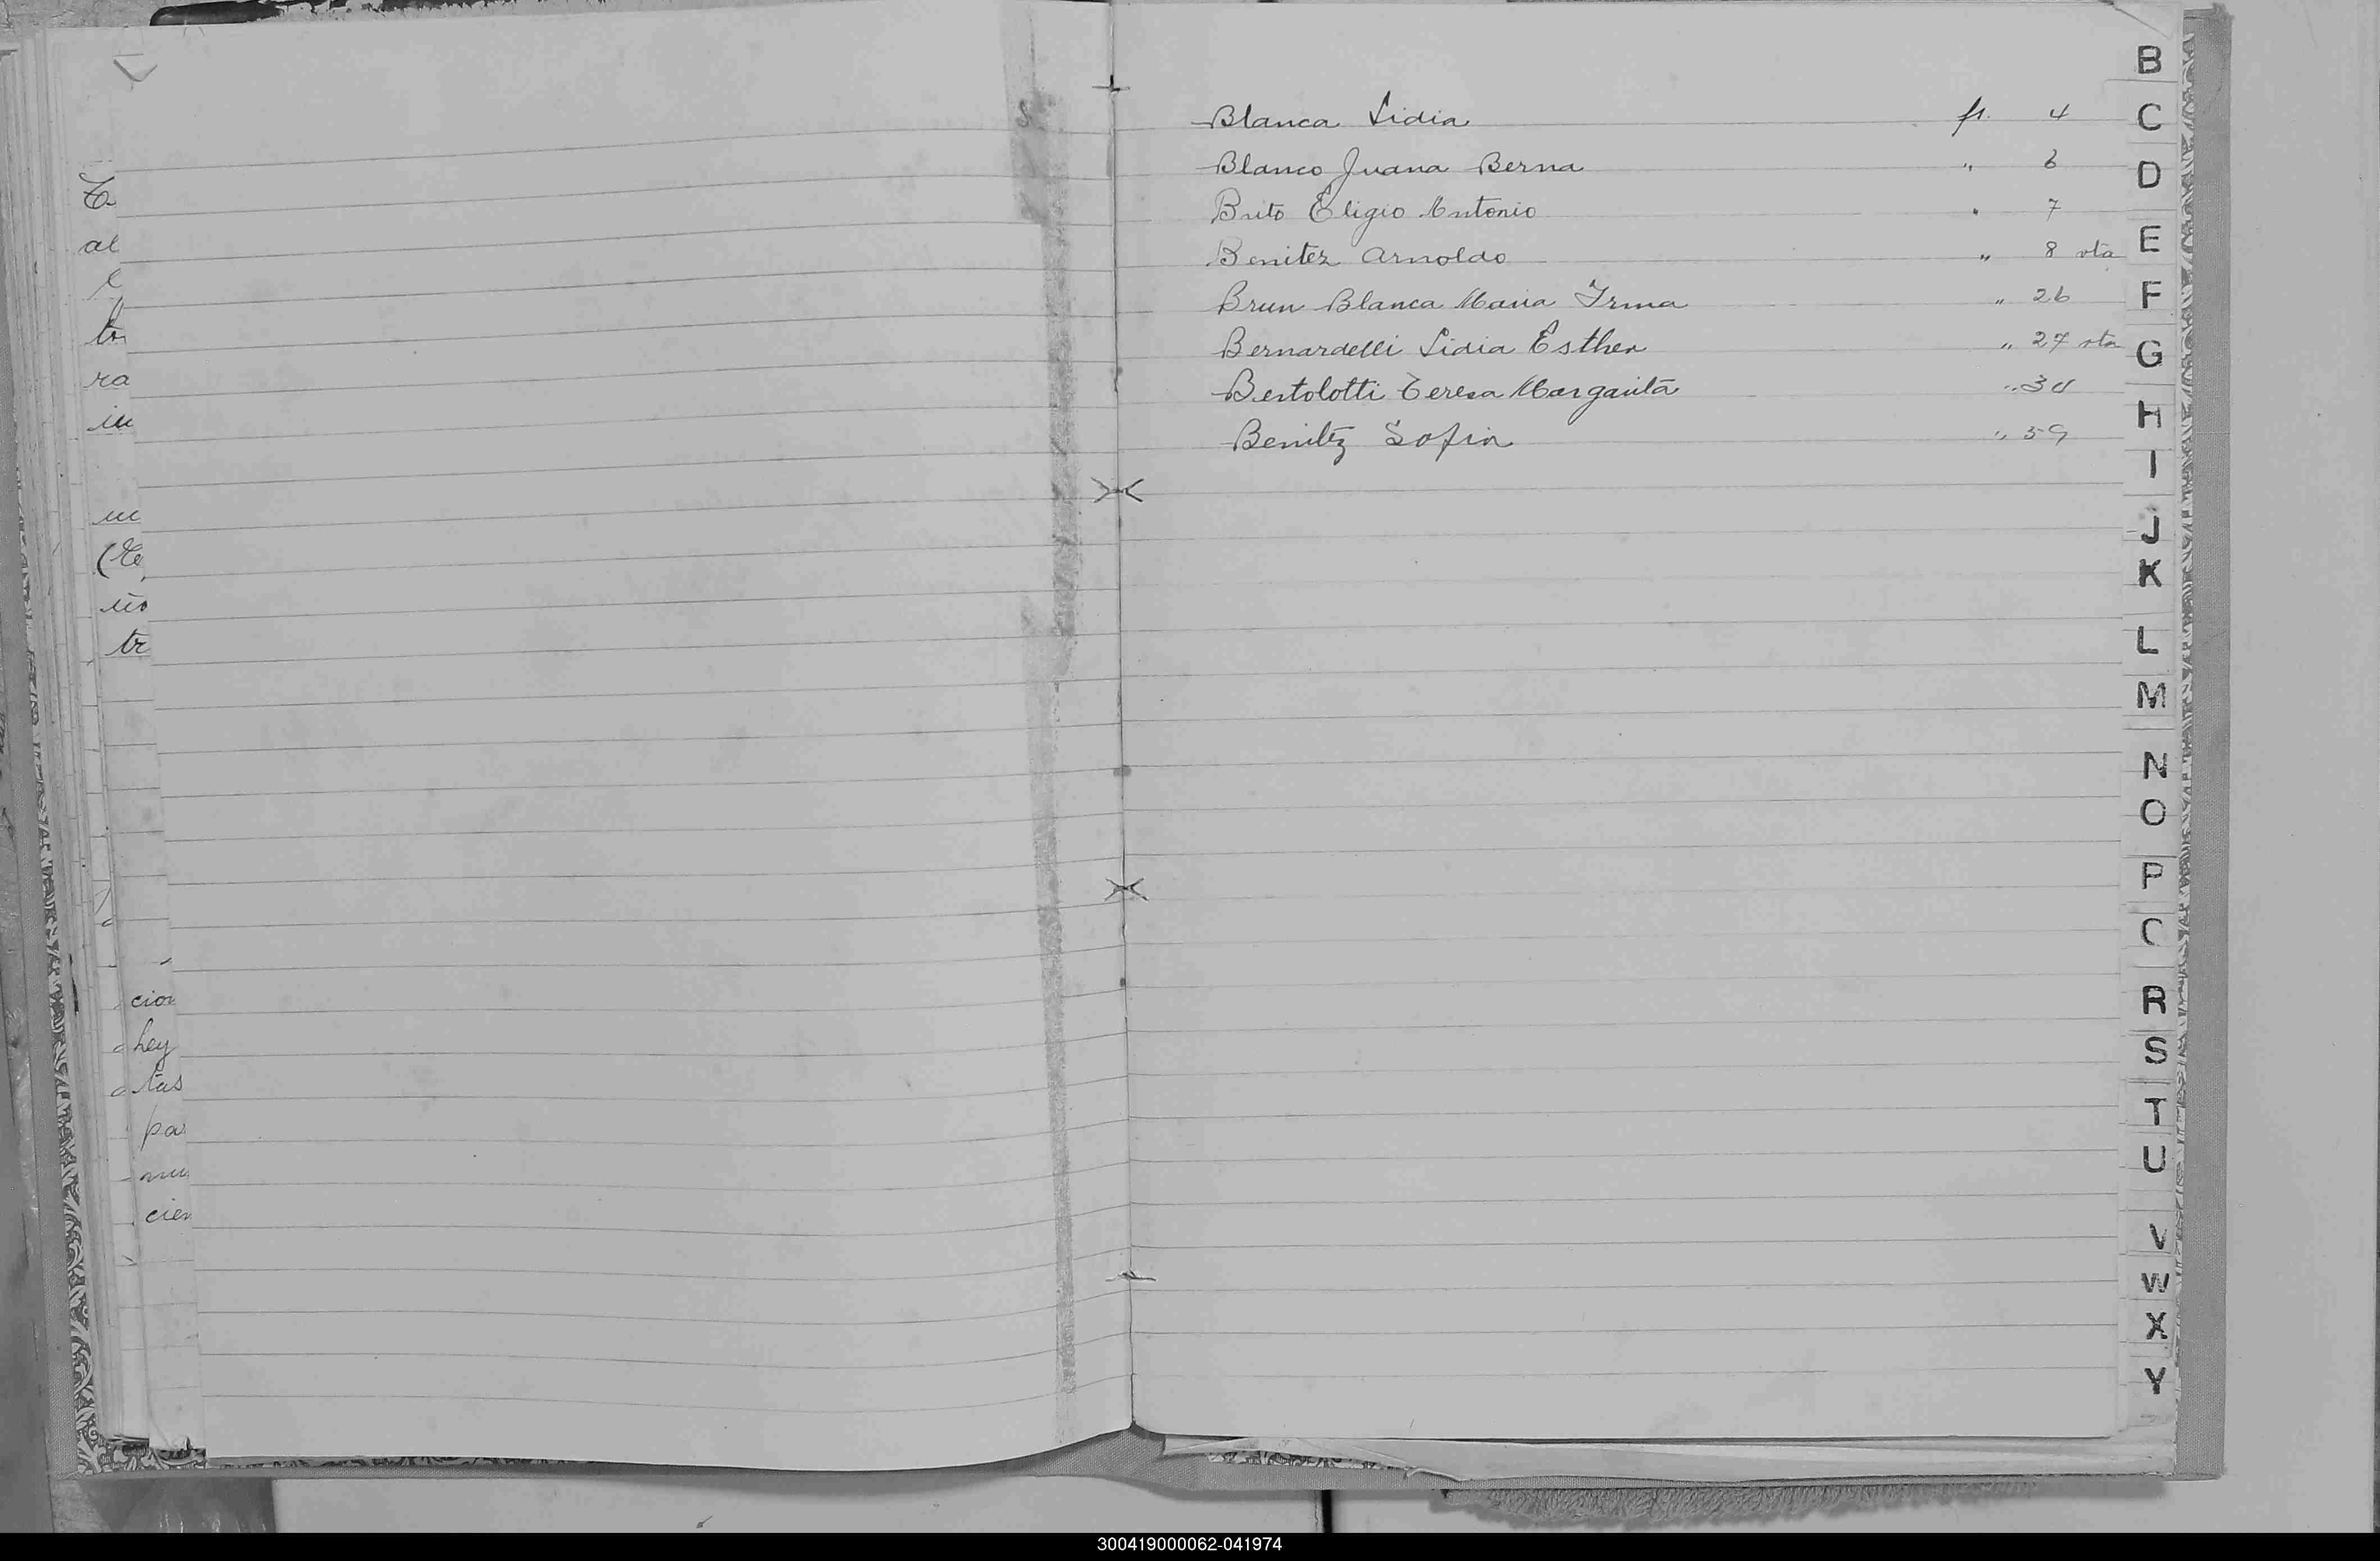 Blanca Lidia fs. 4
Blanco Juana Berna " 6
Brito Eligio Antonio " 7
Benitez Arnoldo " 8 vta
Brun Blanca Maria Irma " 26
Bernardelli Lidia Esther " 27 vta
Bertolotti Teresa Margarita " 30
Benitez Sofia " 59
al
to
ra
in
tr
cion
hey
tas
par
cien
B
C
D
E
F
G
H
I
J
K
L
M
N
O
P
R
S
T
U
V
W
X
Y
300419000062-041974